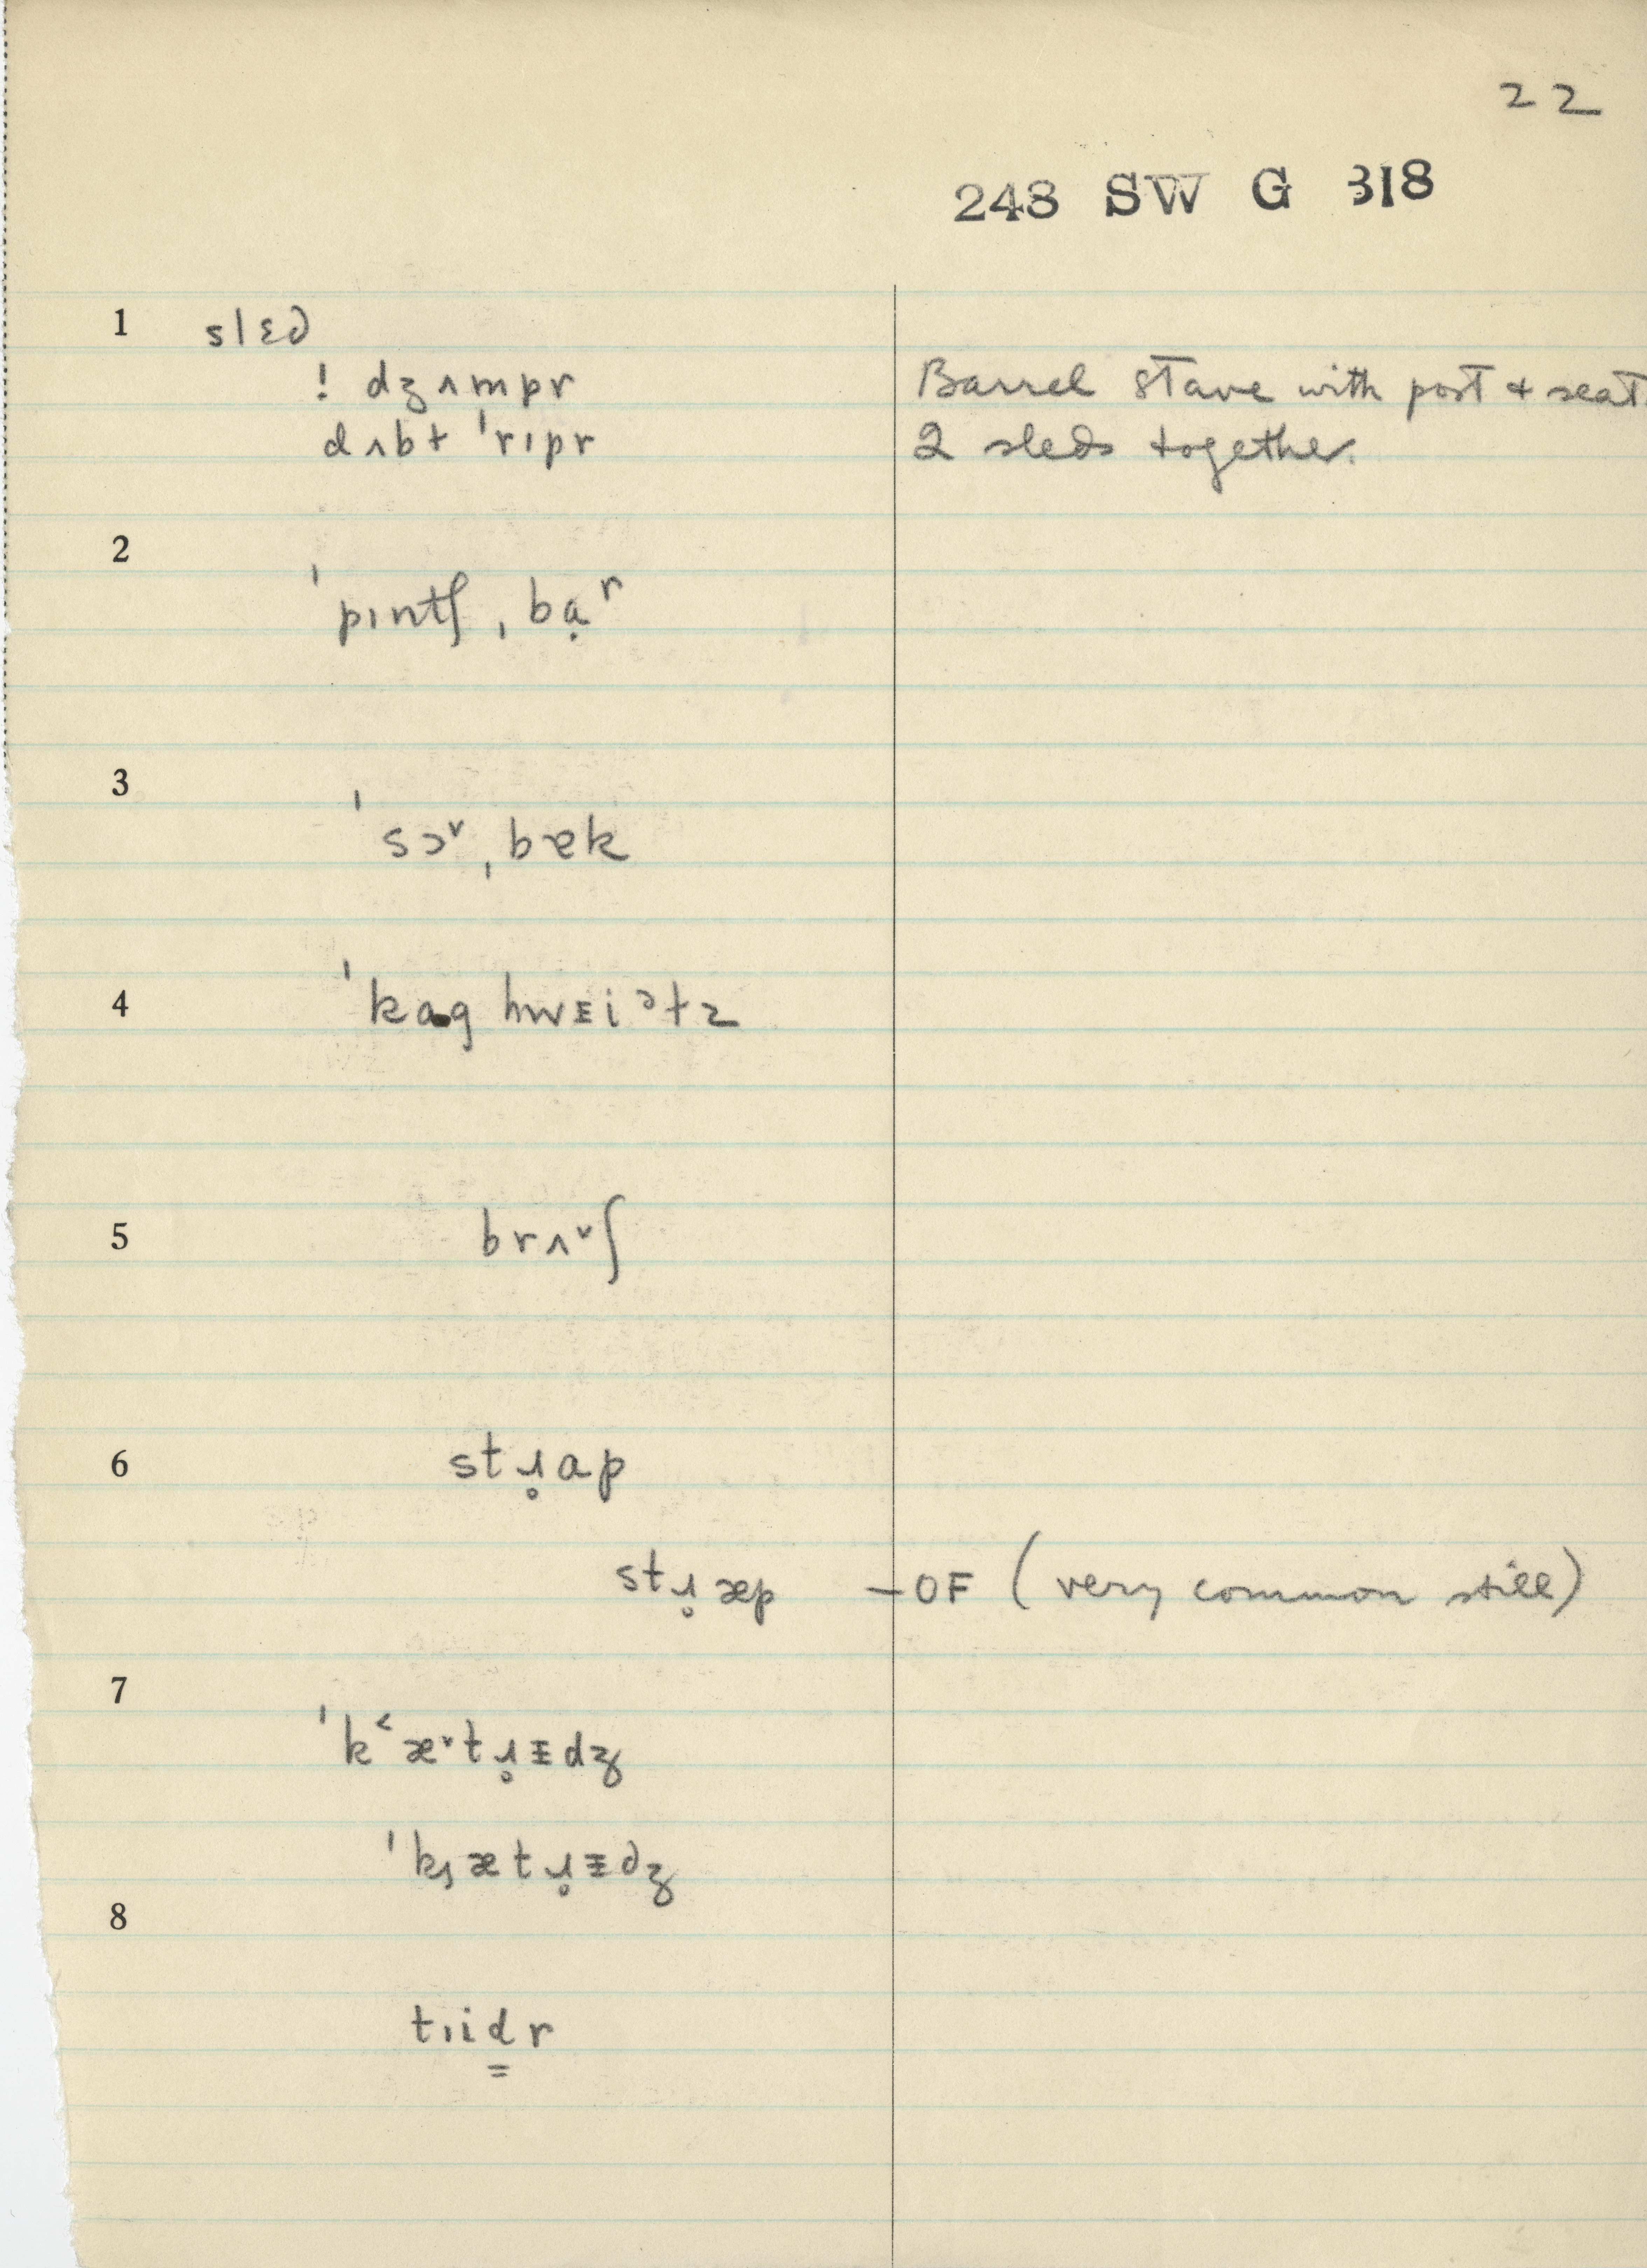 22
248 SW G 318
1 slɛd
! dʒʌmpr Barrel stave with post + seat.
dʌbɫ ˈrɪpr 2 sleds together.
2
ˈpɪntʃ ˌbạʳ
3
ˈsɔ˅ ˌbɐk
4 ˈkag hwɛiᵊɫz
5 brʌ˅ʃ
6 stɹ̥ap
stɹ̥æp – OF (very common still)
7
ˈk˂æ˅tɹ̥ɪdʒ
ˈk̡ætɹ̥ɪdʒ
8
tɪid̳r